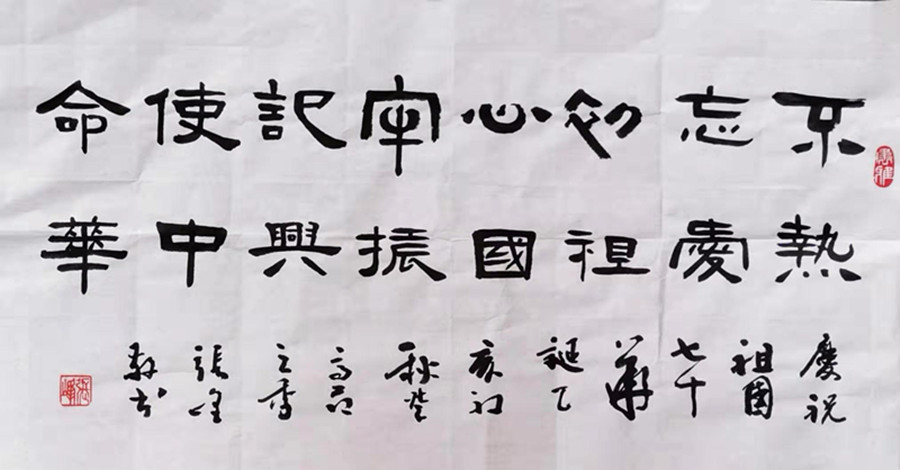 不忘初心牢記使命
熱愛祖國振興中華
慶祝祖國七十華誕己亥初秋張峰敬書